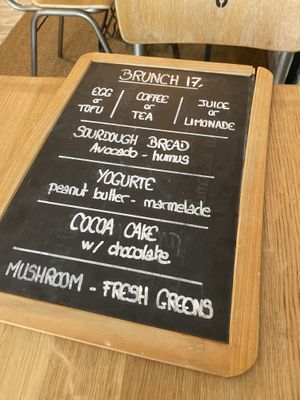 BRUNCH 17,
EGG or TOFU | COFFEE or TEA | JUICE or LIMONADE
SOURDOUGH BREAD
Avocado - humus
YOGURTE
peanut butter - marmelade
COCOA CAKE
w/ chocolate
MUSHROOM - FRESH GREENS